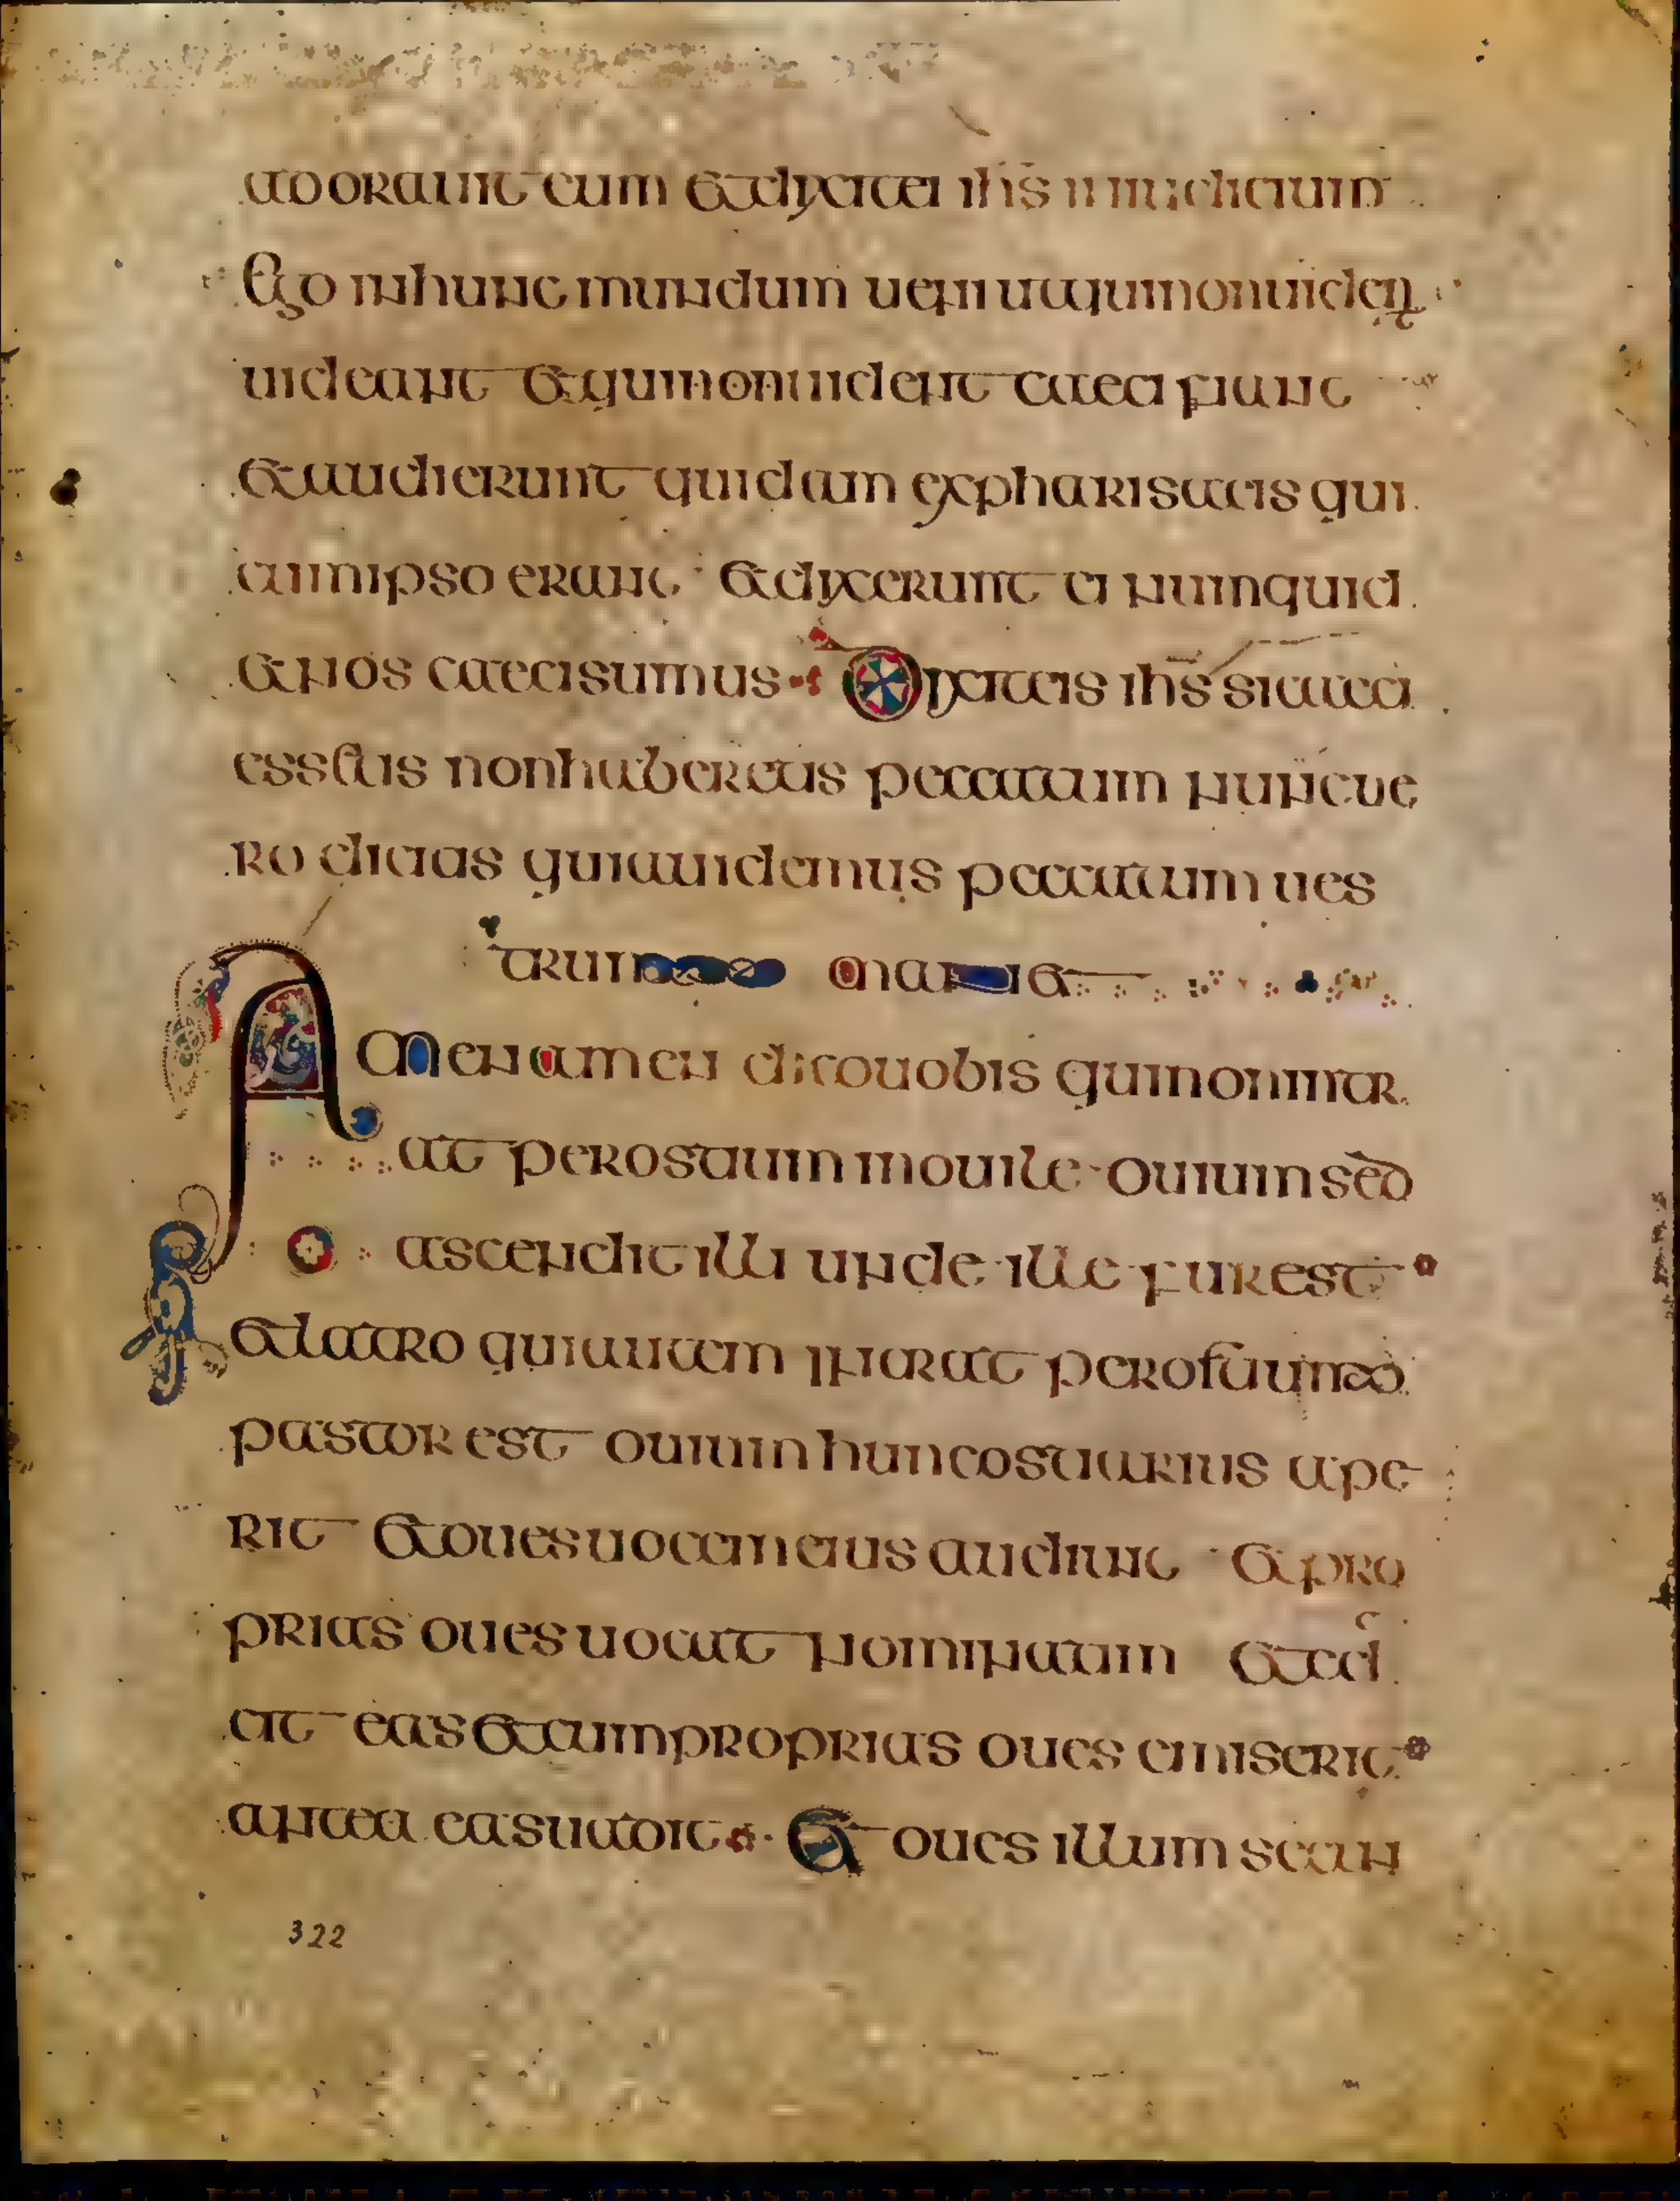 adorauit eum et dixit ei ihs in iudicium
Ego inhunc mundum ueni utquinonuident
uideant et quinonuident caeci fiunt
et audierunt quidam expharisaeis qui
cumipso erant et dixerunt ei numquid
et nos caecisumus Dixiteis ihs sicaeci
essetis nonhaberetis peccatum nuncue
ro dicitis quiauidemus peccatum ues
trum manet
Amen amen dicouobis quinonintr
at perostium inouile ouium sed
ascendit illi unde ille furest
et latro quiautem intrat perostium
pastor est ouium huncostiarius ape
rit et ouesuocem eius audiunt et pro
prias oues uocat nominatim et ed
cit eas et cumproprias oues emiserit
antea easuadit Et oues illum secun
322